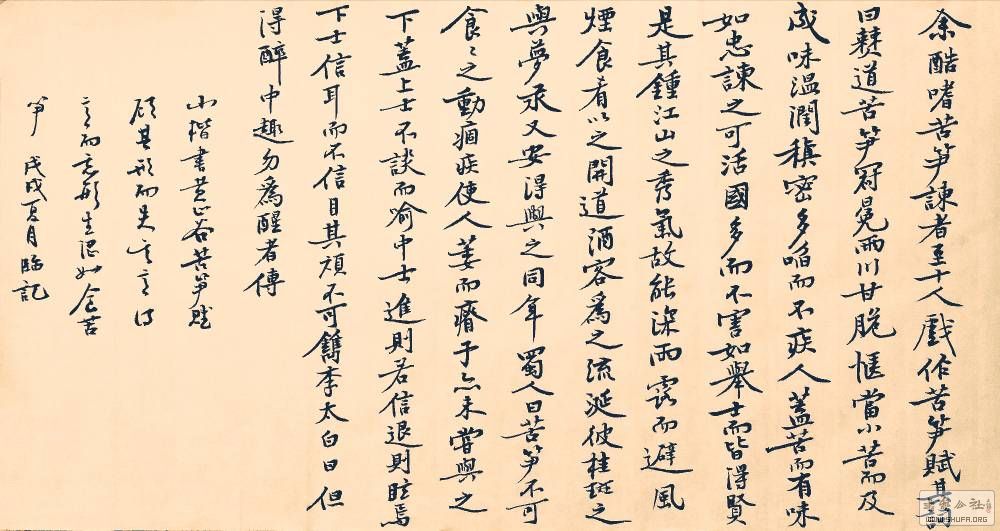 余酷嗜苦笋諫者至十人戲作苦笋賦其詞
曰僰道苦笋冠冕兩川甘脆愜當小苦而及
成味温潤稹密多啗而不疾人蓋苦而有味
如忠諫之可活國多而不害如舉士而皆得賢
是其鍾江山之秀氣故能深雨露而避風
煙食肴以之開道酒客爲之流涎彼桂斑之
與夢汞又安得與之同年蜀人曰苦笋不可
食〻之動痼疾使人萎而瘠予亦未嘗與之
下蓋上士不談而喻中士進則若信退則眩焉
下士信耳而不信目其頑不可鐫李太白曰但
得醉中趣勿爲醒者傳
小楷書黄山谷苦笋賦
顧其形而失其意得
意而忘形生澀如食苦
笋 戊戌夏月臨記
公社
WWW.SHUFA.ORG